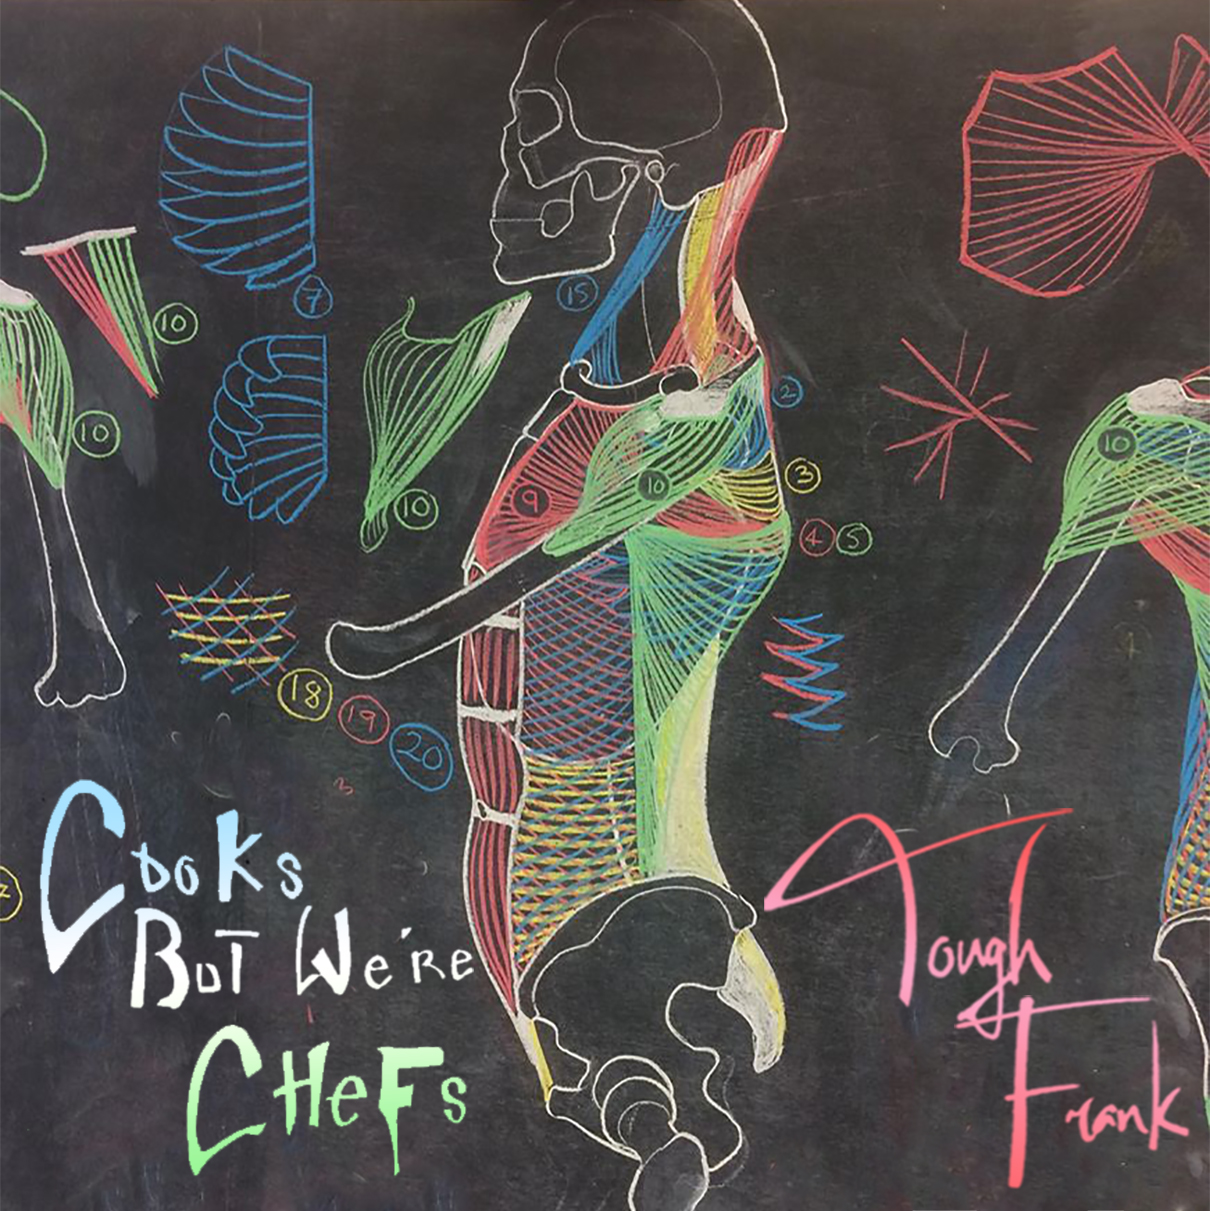 7
10
15
10
2
10
10
9
10
3
10
4 5
18
19
20
Cooks
But We're
Chefs
Tough
Frank